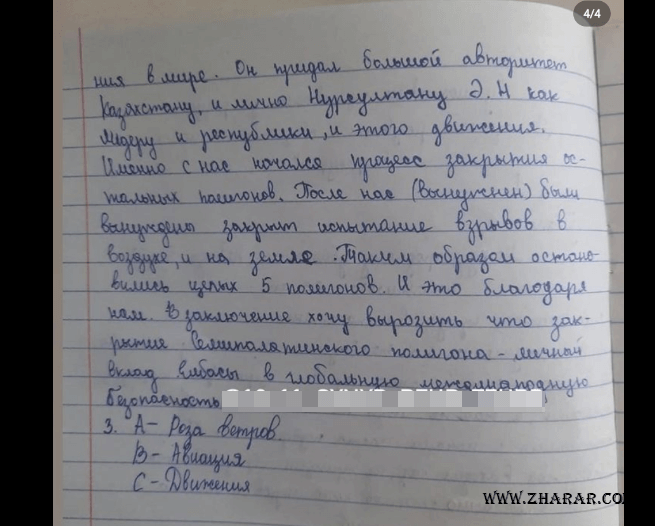 4/4
ния в мире. Он придал большой авторитет
Казахстану, и лично Нурсултану Э.Н как
лидеру и республики, и этого движения.
Именно с нас начался процесс закрытия ос-
тальных полигонов. После нас (вынужнен) были
вынуждена закрыт испытание взрывов в
воздухе, и на земле. Таким образом остано-
вились целых 5 полигонов. И это благодаря
нам. В заключение хочу вырозить что зак-
рытие Семипалатинского полигона - личный
вклад Елбасы в глобальную международную
безопасность
3. А- Роза ветров.
В- Авиация
С- Движения
WWW.ZHARAR.CO